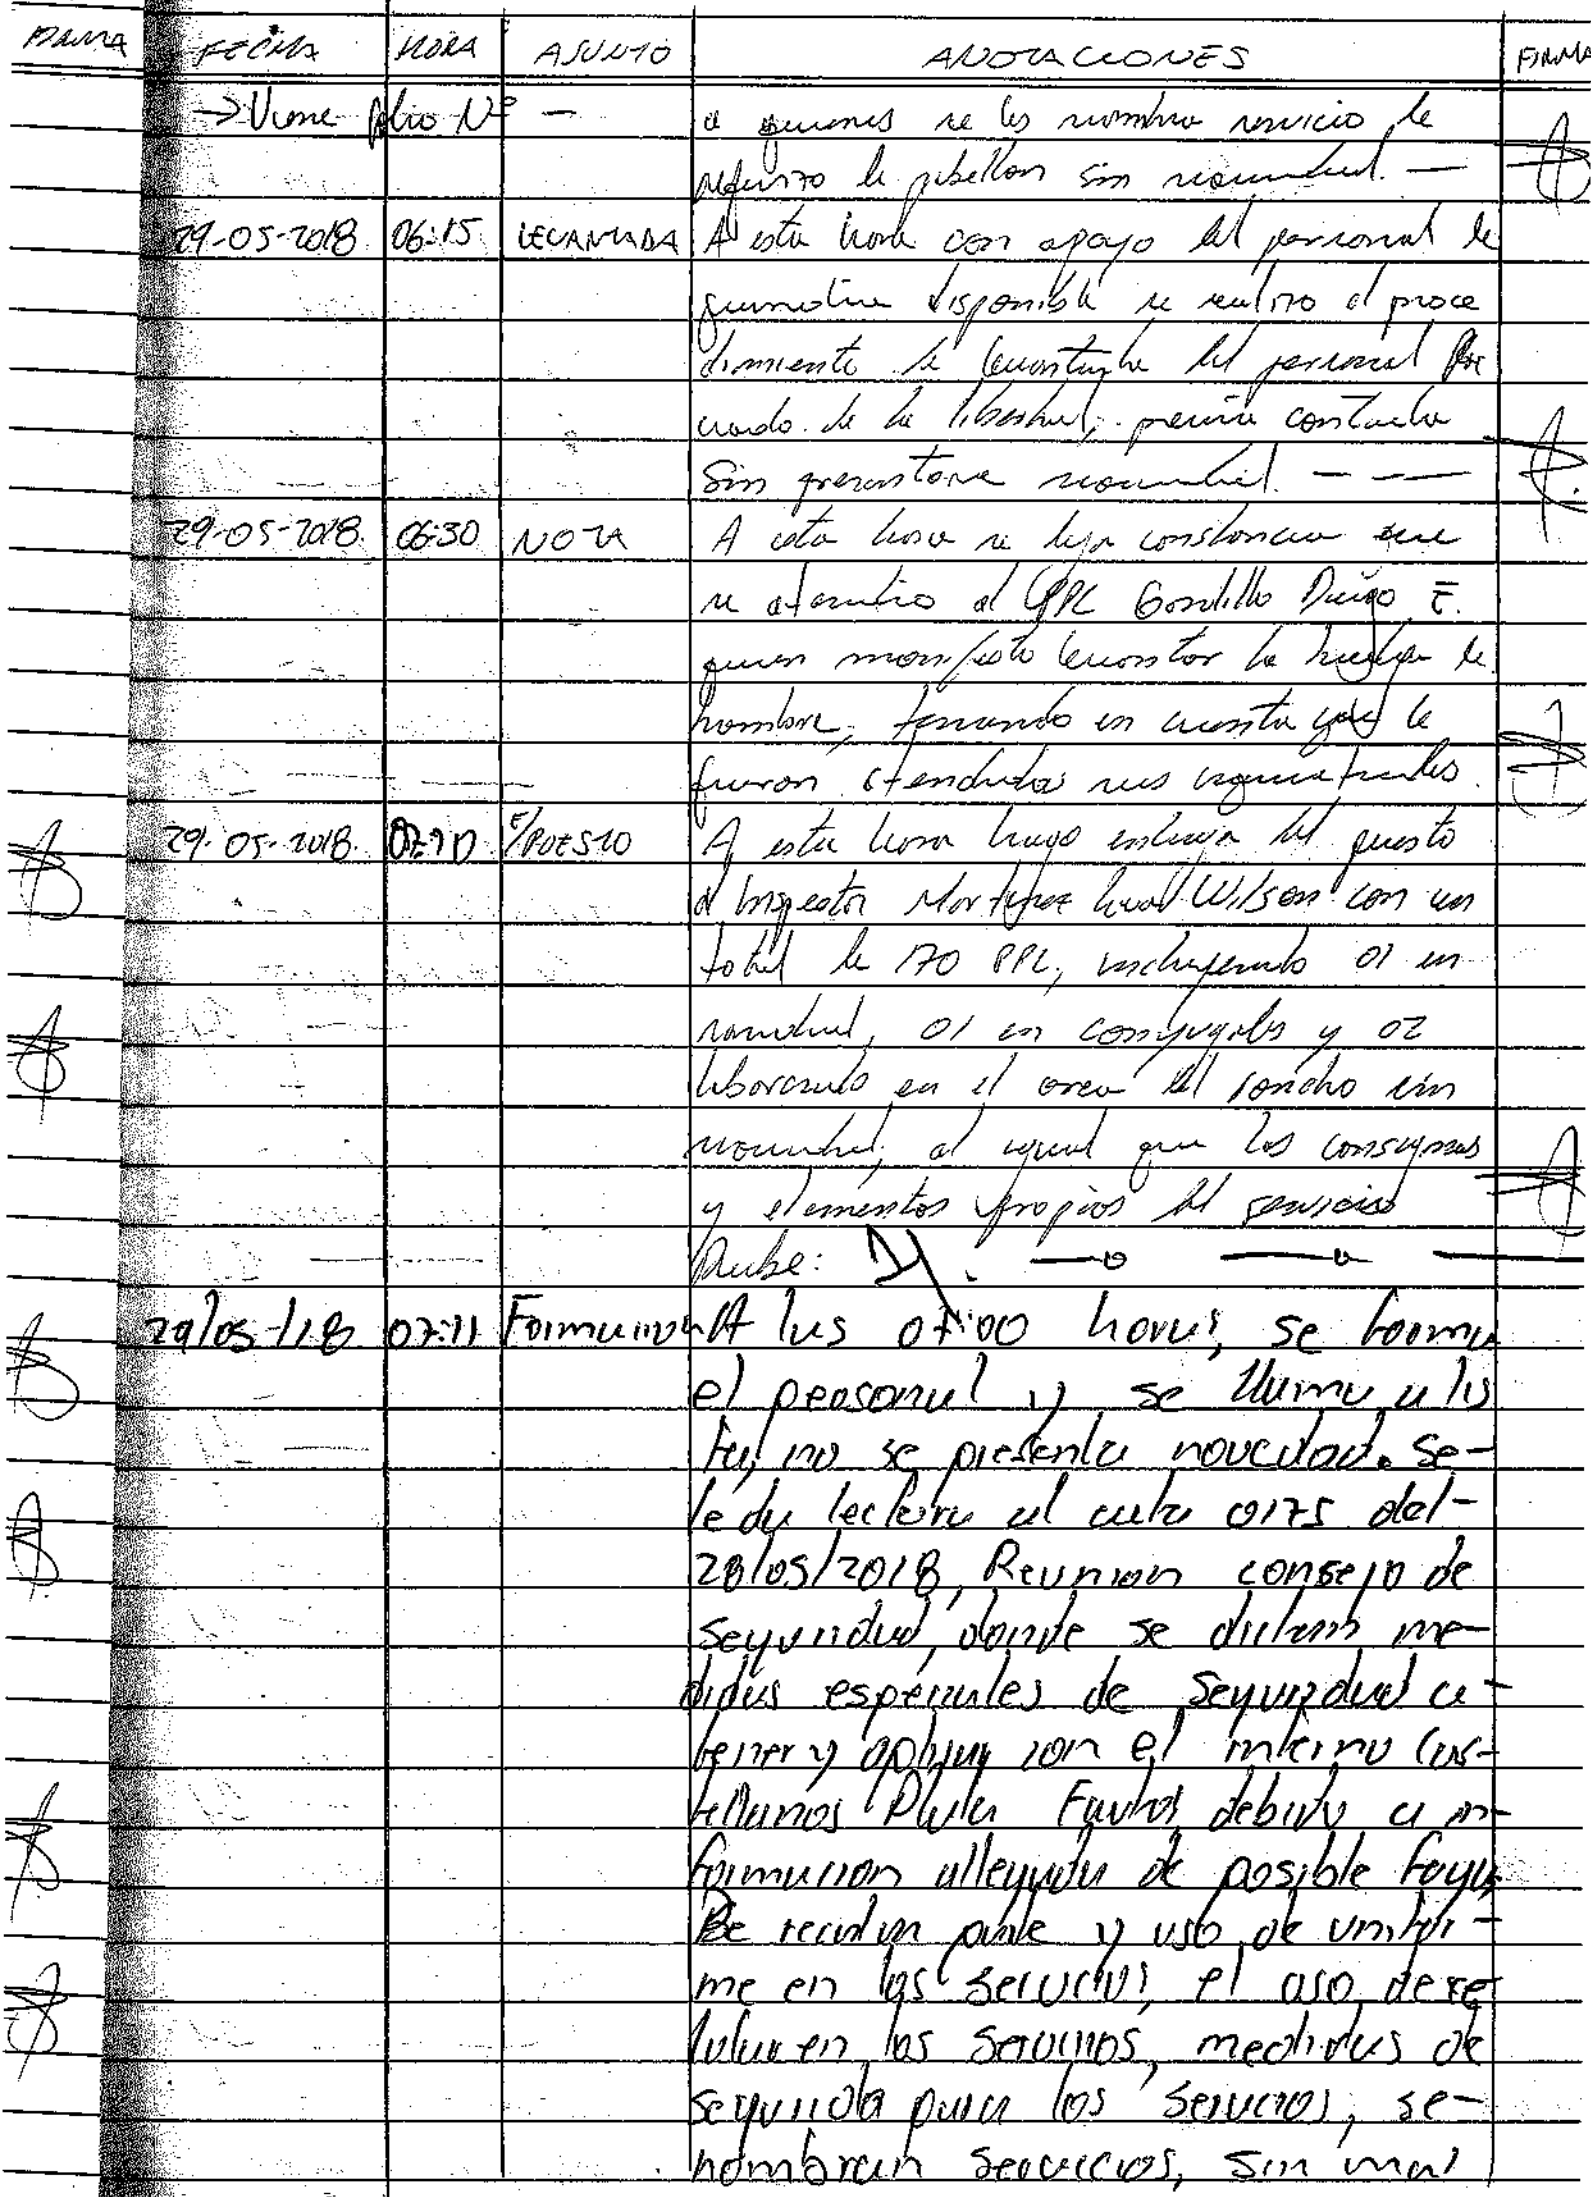 FIRMA FECHA HORA ASUNTO ANOTACIONES FIRMA
→ Viene folio Nº — a quienes se les nombra servicio de
refuerzo de pabellon sin novedad. —
29-05-2018 06:15 LEVANTADA A esta hora con apoyo del personal de
guardia disponible se realizo el proce
dimiento de levantada del personal Pri
vado de la libertad, previa contada
Sin presentarse novedad. — — —
29-05-2018 06:30 NOTA A esta hora se deja constancia que
se atendio al PPL Gordillo Diego E.
quien manifesto levantar la huelga de
hambre, teniendo en cuenta que le
fueron atendidas sus
29-05-2018 07:10 E/PUESTO A esta hora hago entrega del puesto
al Inspector Martinez Wilson con un
total de 170 PPL, incluyendo 01 en
sanidad, 01 en conyugales y 02
laborando en el area del rancho sin
novedad, al igual que las consignas
y elementos propios del servicio
Recibe:
29/05/18 07:11 Formacion A las 07:00 horas, se forma
el personal y se llama a lis
ta, no se presenta novedad. Se-
le da lectura al acta 0175 del-
28/05/2018, Reunion consejo de
seguridad, donde se dictan me-
didas especiales de seguridad a-
tener y aplicar con el interno Cas-
tellanos Plata Favio, debido a in-
formacion allegada de posible Fuga
Se recalca porte y uso de unifor-
me en los servicios, el aso, de ce
lular en los servicios, medidas de
segurida para los servicios, se-
nombran servicios, sin mas